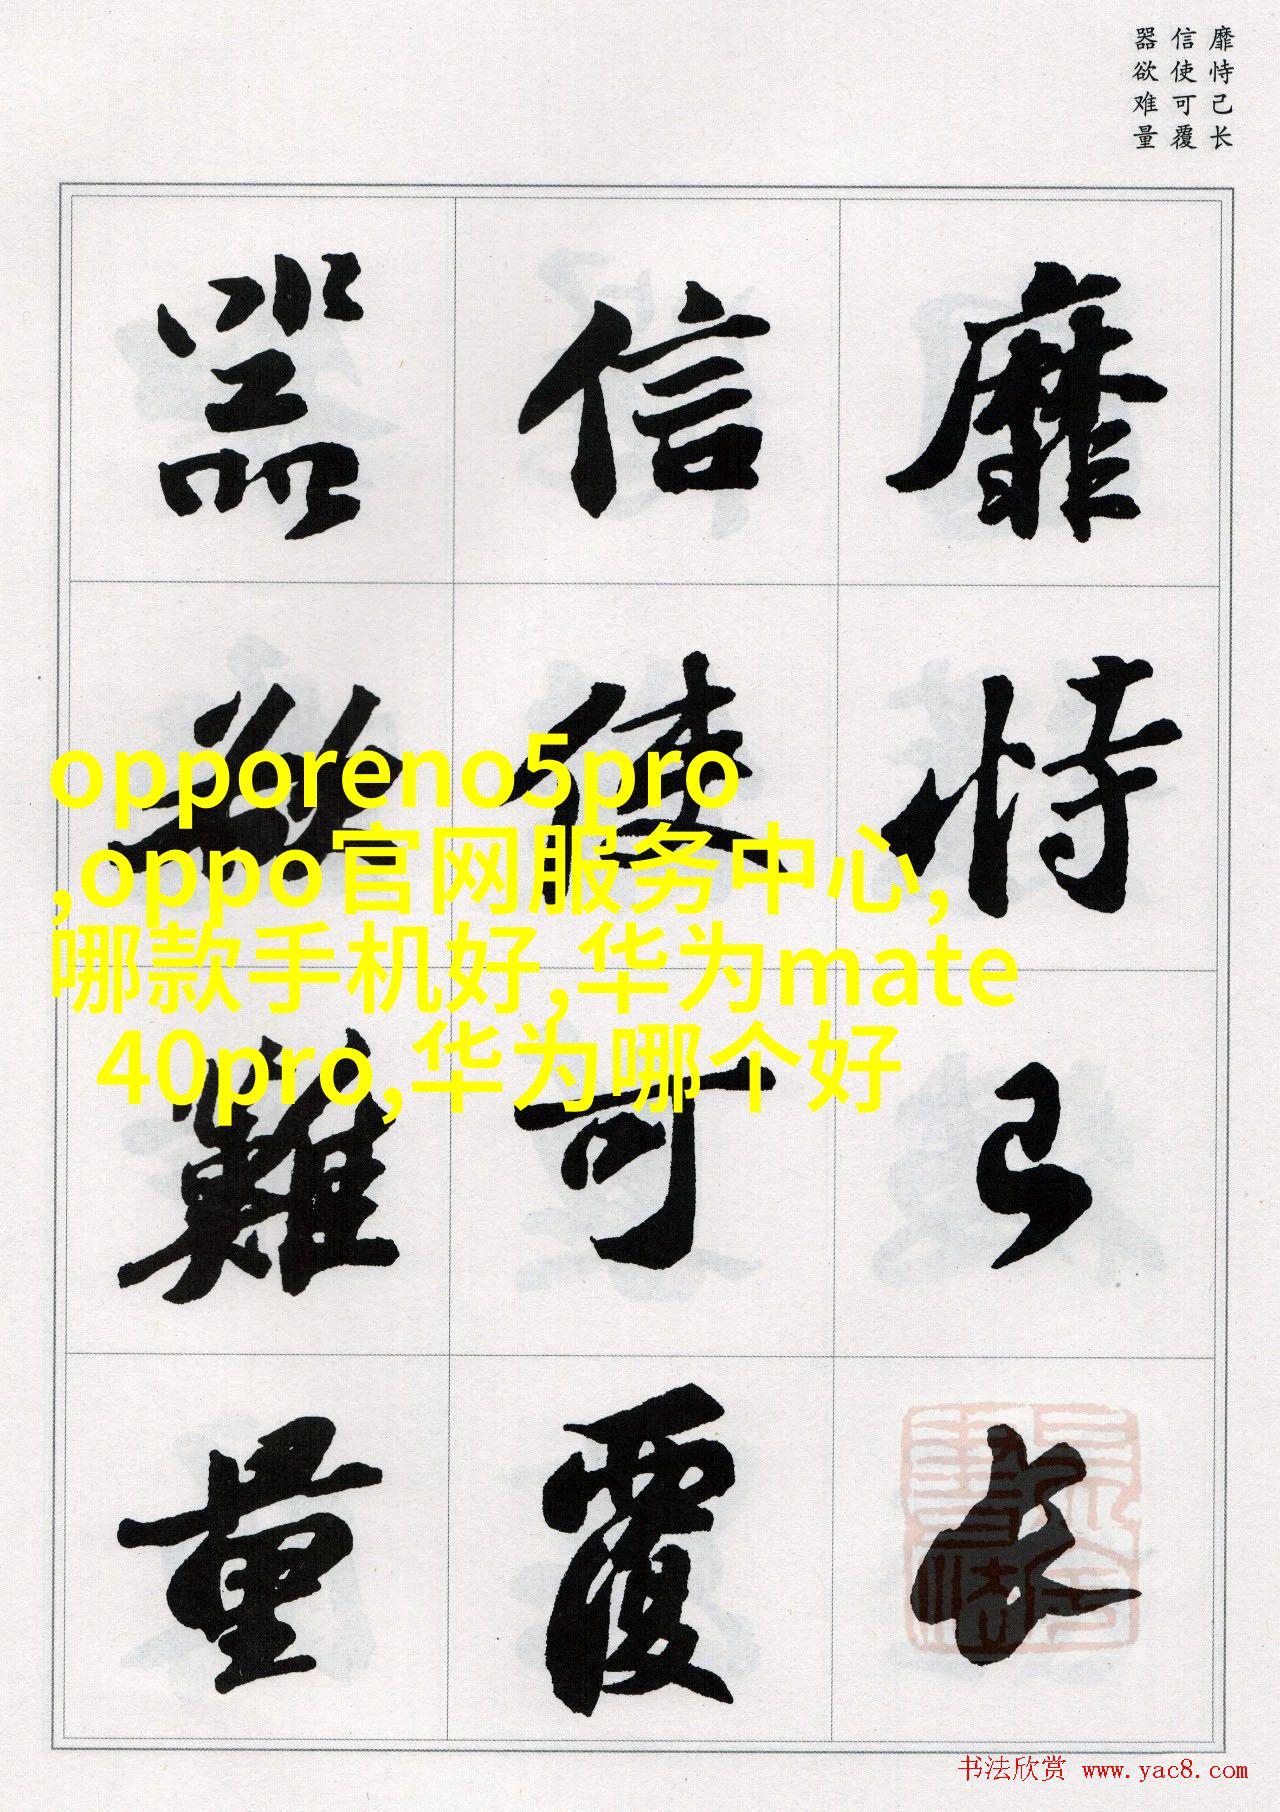 靡恃己长
信使可覆
器欲难量
靡恃己長
信使可覆
器欲難量
opporeno5pro
,oppo官网服务中心,
哪款手机好,华为mate
40pro,华为哪个好
书法欣赏 www.yac8.com